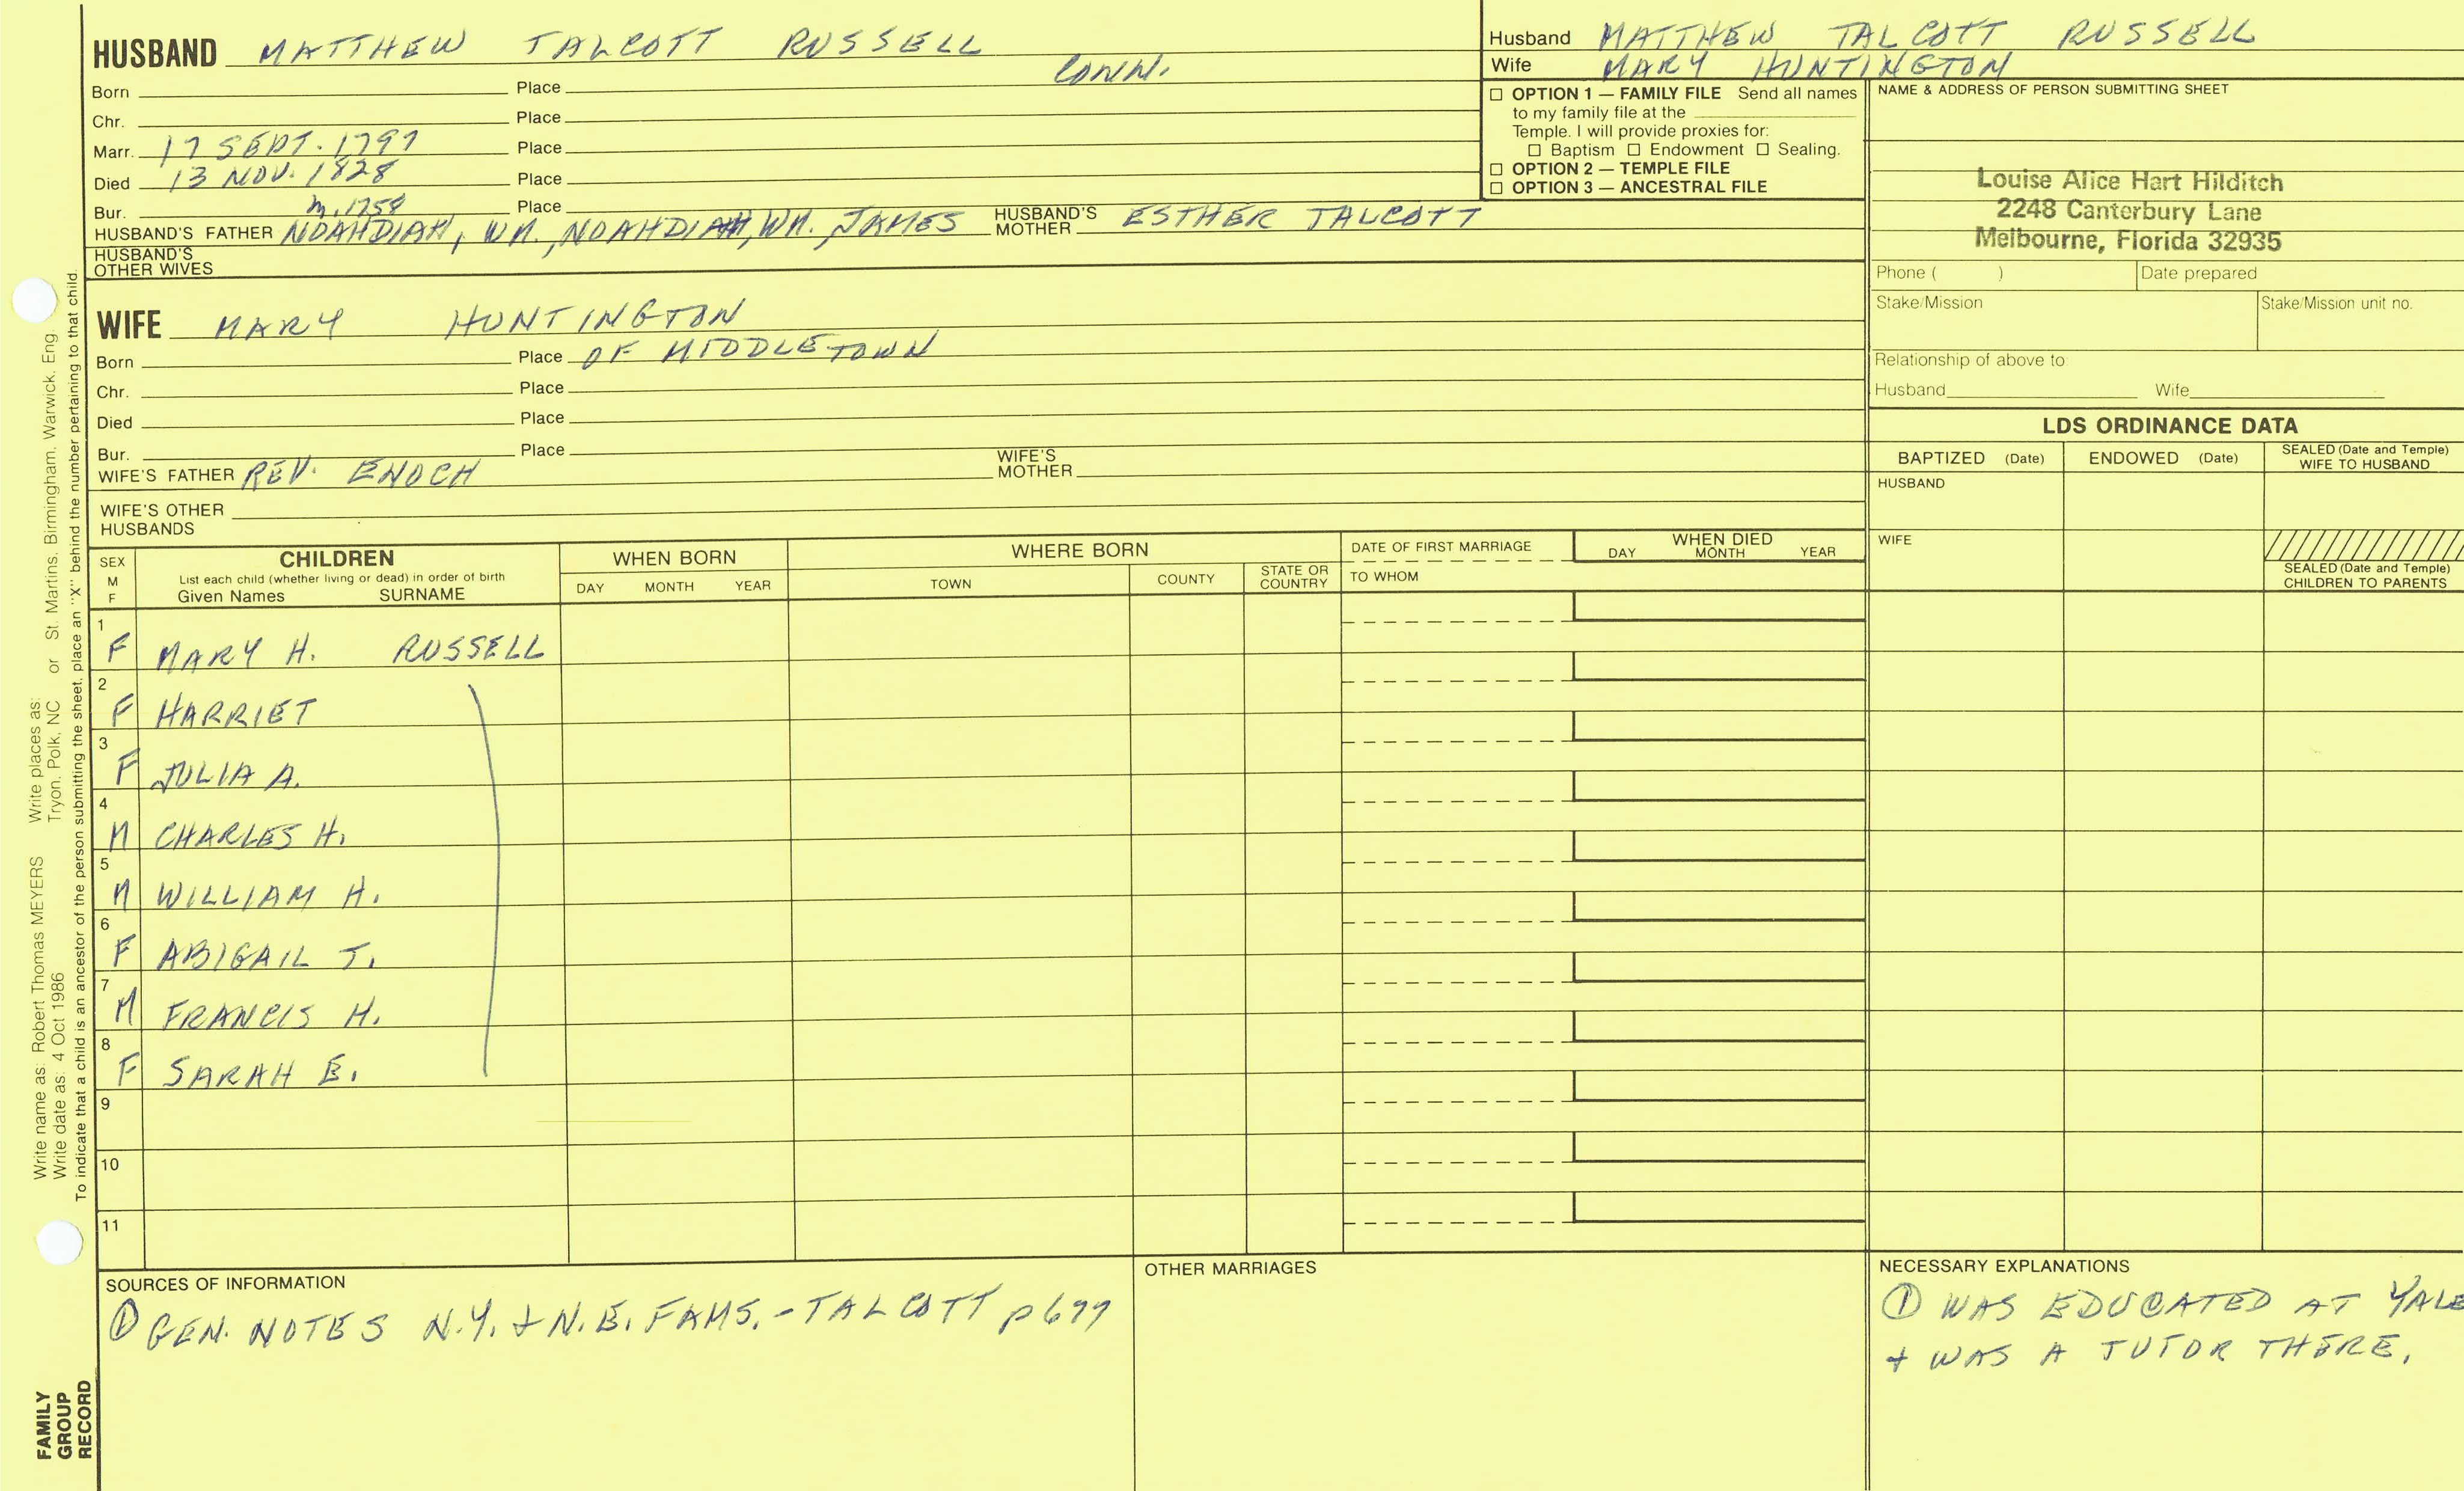 HUSBAND MATTHEW TALCOTT RUSSELL
CONN.
Born Place
Chr. Place
Marr. 17 SEPT. 1797 Place
Died 13 NOV. 1828 Place
Bur. Place
m. 1758
HUSBAND'S FATHER NOAHDIAH, WM., NOAHDIAH, WM., JAMES HUSBAND'S MOTHER ESTHER TALCOTT
HUSBAND'S OTHER WIVES
WIFE MARY HUNTINGTON
Born Place OF MIDDLETOWN
Chr. Place
Died Place
Bur. Place
WIFE'S FATHER REV. ENOCH WIFE'S MOTHER
WIFE'S OTHER HUSBANDS
Husband MATTHEW TALCOTT RUSSELL
Wife MARY HUNTINGTON
☐ OPTION 1 — FAMILY FILE Send all names
to my family file at the
Temple. I will provide proxies for:
☐ Baptism ☐ Endowment ☐ Sealing.
☐ OPTION 2 — TEMPLE FILE
☐ OPTION 3 — ANCESTRAL FILE
NAME & ADDRESS OF PERSON SUBMITTING SHEET
Louise Alice Hart Hilditch
2248 Canterbury Lane
Melbourne, Florida 32935
Phone ( ) Date prepared
Stake/Mission Stake/Mission unit no.
Relationship of above to:
Husband Wife
LDS ORDINANCE DATA
BAPTIZED (Date) ENDOWED (Date) SEALED (Date and Temple) WIFE TO HUSBAND
HUSBAND
WIFE
SEALED (Date and Temple)
CHILDREN TO PARENTS
SEX M F
CHILDREN
List each child (whether living or dead) in order of birth
Given Names SURNAME
WHEN BORN
DAY MONTH YEAR
WHERE BORN
TOWN COUNTY STATE OR COUNTRY
DATE OF FIRST MARRIAGE
TO WHOM
WHEN DIED
DAY MONTH YEAR
1 F MARY H. RUSSELL
2 F HARRIET
3 F JULIA A.
4 M CHARLES H.
5 M WILLIAM H.
6 F ABIGAIL T.
7 M FRANCIS H.
8 F SARAH E.
9
10
11
SOURCES OF INFORMATION
① GEN. NOTES N.Y. & N.E. FAMS. - TALCOTT p 677
OTHER MARRIAGES
NECESSARY EXPLANATIONS
① WAS EDUCATED AT YALE
+ WAS A TUTOR THERE.
Write name as: Robert Thomas MEYERS Write places as:
Write date as: 4 Oct 1986 Tryon, Polk, NC or St. Martins, Birmingham, Warwick, Eng
To indicate that a child is an ancestor of the person submitting the sheet, place an "X" behind the number pertaining to that child.
FAMILY
GROUP
RECORD